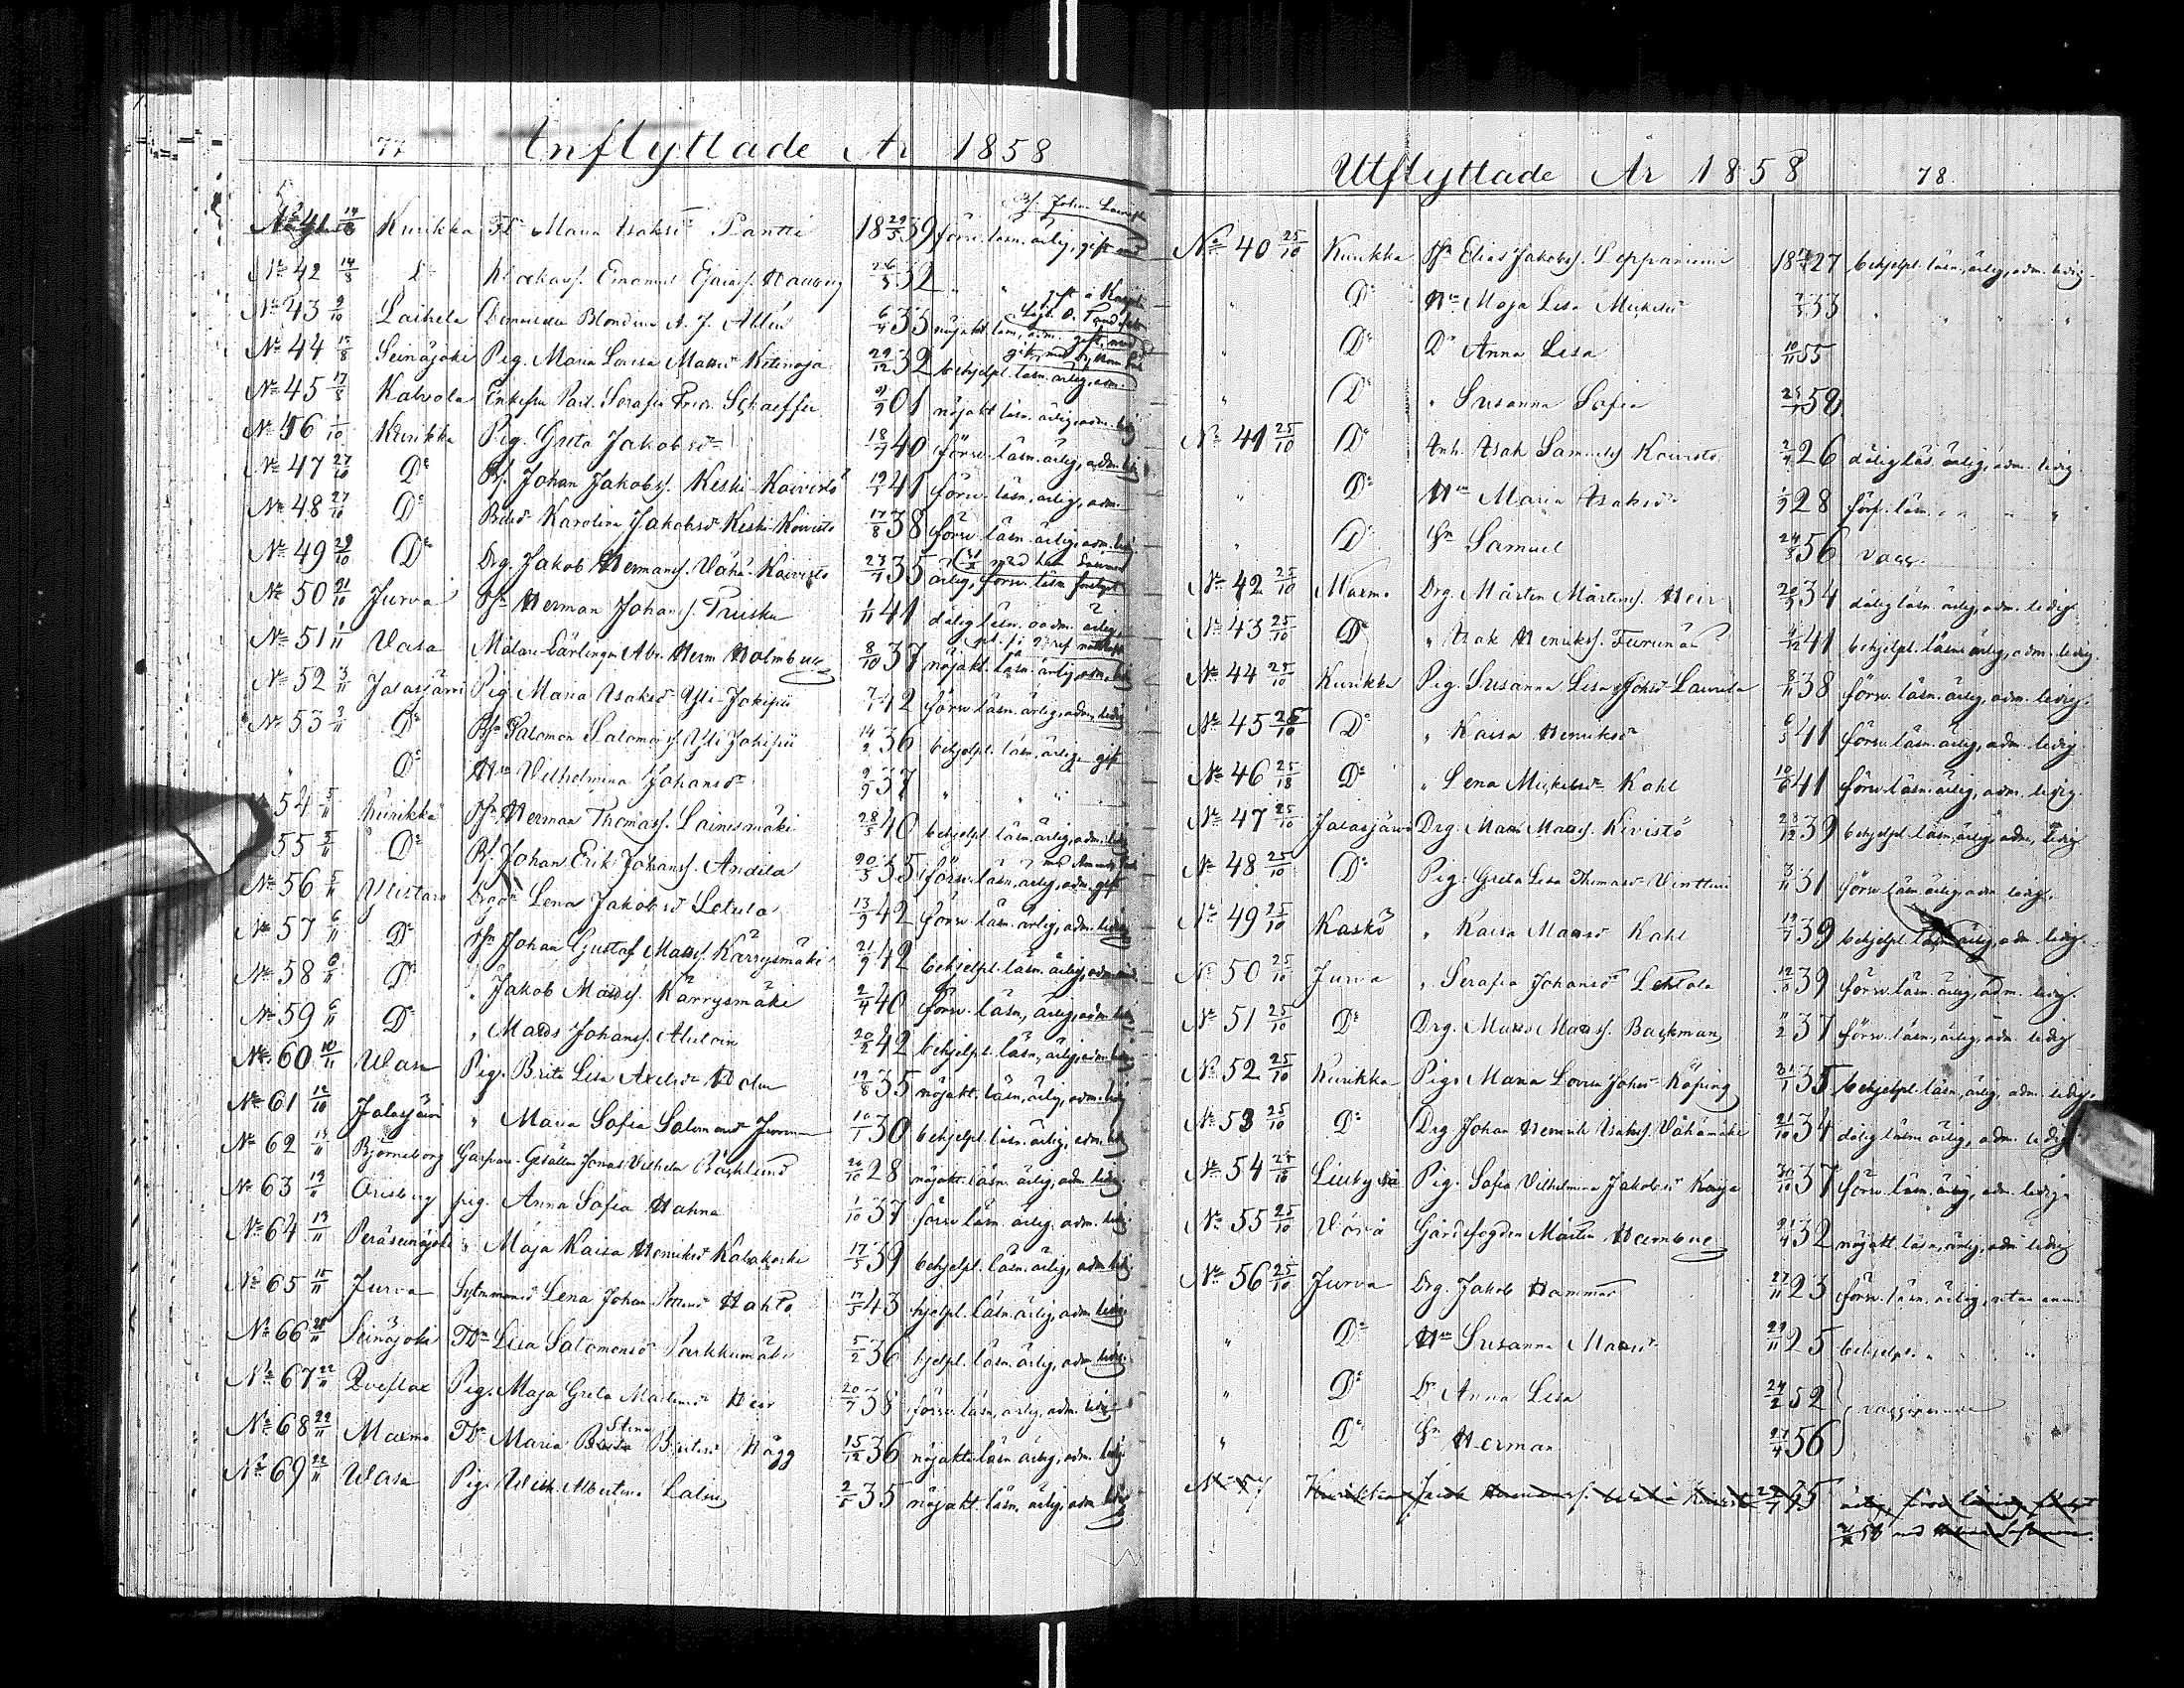 77 Inflyttade År 1858
Bf. Johan
No 41 Kurikka Td. Maria Isaksd. Pantti 18 29/5 39 försv. läsn. ärlig, gift med
No 42 14/8 D:o Emanuel 26/3 32 " "
No 43 9/10 Laihela Blondina A. J. Ahlén 6/4 35 nöjakt. läsn.
No 44 17/8 Seinäjoki Pig. Maria Lovisa Matsd. Kitinoja 29/12 32 behjelpl. läsn. ärlig, adm.
No 45 17/8 Kalvola Enkefru Serafia Fred. Schaeffer 9/9 01 nöjakt. läsn. ärlig, adm. led.
No 46 1/10 Kurikka Pig. Greta Jakobsd. 18/7 40 försv. läsn. ärlig, adm. led.
No 47 27/10 D:o Bf. Johan Jakobss. Keski-Koivisto 19/1 41 försv. läsn. ärlig, adm.
No 48 27/10 D:o Karolina Jakobsd. Keski-Koivisto 17/8 38 försv. läsn. ärlig, adm. led.
No 49 29/10 D:o Drg. Jakob Hermans. Vähä-Koivisto 27/7 35 ärlig, försv. läsn.
No 50 21/10 Jurva Herman Johans. Pruska 1/11 41 dålig läsn. oadm. ärlig
No 51 1/11 Vasa Målare Lärlingen Abr. Herm. Holmberg 8/10 37 nöjakt. läsn. ärlig, adm. led.
No 52 3/11 Jalasjärvi Pig. Maria Isaksd. Yli-Jokipii 7/1 42 försv. läsn. ärlig, adm. ledig
No 53 3/11 D:o Salomon Salomons. Yli Jokipii 14/2 36 behjelpl. läsn. ärlig gift
" D:o Hu Vilhelmina Johansd. 9/9 37 " " "
54 5/11 Kurikka Herman Thomass. Lainesmäki 28/5 40 behjelpl. läsn. ärlig, adm. led.
55 5/11 D:o Bf. Johan Erik Johans. Andila 20/3 35 försv. läsn. ärlig, adm. gift
No 56 5/11 Ylistaro Lena Jakobsd. Letula 13/9 42 försv. läsn. ärlig, adm. ledig
No 57 6/11 D:o Johan Gustaf Matss. Kärrysmäki 21/9 42 behjelpl. läsn. ärlig, adm. led.
No 58 6/11 D:o " Jakob Matss. Kärrysmäki 2/4 40 försv. läsn. ärlig, adm. led.
No 59 6/11 D:o " Matts Johans. 20/2 42 behjelpl. läsn. ärlig, adm.
No 60 10/11 Wasa Pig. Brita Lisa Axelsd. Holm 19/8 35 nöjakt. läsn. ärlig, adm. led.
No 61 12/10 Jalasjärvi " Maria Sofia Salomonsd. 10/1 30 behjelpl. läsn. ärlig, adm. led.
No 62 13/11 Björneborg Garfvare-Gesällen Jonas Vilhelm Bäcklund 26/10 28 nöjakt. läsn. ärlig, adm. ledig
No 63 19/11 Orisberg pig. Anna Sofia Hahne 1/10 37 försv. läsn. ärlig, adm. ledig
No 64 13/11 Peräseinäjoki " Maja Kaisa Henriksd. Kalakoski 17/5 39 behjelpl. läsn. ärlig, adm. led.
No 65 15/11 Jurva Lena Johan Hahto 17/5 43 hjelpl. läsn. ärlig, adm. ledig
No 66 20/11 Seinäjoki Td. Lisa Salomonsd. Parkkumäki 5/2 36 hjelpl. läsn. ärlig, adm. ledig
No 67 22/11 Qveflax Pig. Maja Greta Mårtensd. Heir 20/7 38 försv. läsn. ärlig, adm. ledig
No 68 22/11 Maxmo Td. Maria Stina Hägg 15/12 36 nöjaktl. läsn. ärlig, adm. ledig
No 69 22/11 Wasa Pig. Wilh. Albertina 2/5 35 nöjakt. läsn. ärlig, adm. ledig
Utflyttade År 1858 78
No 40 25/10 Kurikka Elias Jakobs. Leppäniemi 18 27 behjelpl. läsn. ärlig, adm. ledig
" D:o Hu Maja Lisa Mickelsd. 33 " " "
" D:o Dr Anna Lisa 10/11 55
" D:o " Susanna Sofia 58
No 41 25/10 D:o Inh. Isak Samuelss. Koivisto 2/4 26 dålig läs. ärlig, adm. ledig
" D:o Hu Maria Isaksd. 1/9 28 förf. läsn. " " "
" D:o Sn Samuel 24/8 56 vacc.
No 42 25/10 Maxmo Drg. Mårten Mårtens. Heir 20/9 34 dålig läsn. ärlig, adm. ledig
No 43 25/10 D:o " Isak Henrikss. Furunäs 41 behjelpl. läsn. ärlig, adm. ledig.
No 44 25/10 Kurikka Pig. Susanna Lisa Johsd. Laurila 8/11 38 försv. läsn. ärlig, adm. ledig.
No 45 25/10 D:o " Kaisa Henriksd. 6/5 41 försv. läsn. ärlig, adm. ledig
No 46 25/10 D:o " Lena Mickelsd. Kahl 10/6 41 försv. läsn. ärlig, adm. ledig.
No 47 25/10 Jalasjärvi Drg. Matts Matss. Kivistö 28/12 39 behjelpl. läsn. ärlig, adm. ledig
No 48 25/10 D:o Pig. Greta Lisa Thomasd. Vintturi 3/11 31 försv. läsn. ärlig adm. ledig.
No 49 25/10 Kaskö " Kaisa Matsd. Kahl 19/7 39 behjelpl. läsn. ärlig, adm. ledig
No 50 25/10 Jurva " Serafia Johansd. Lehtola 39 försv. läsn. ärlig, adm. ledig.
No 51 25/10 D:o Drg. Matts Matss. Backman 37 försv. läsn. ärlig, adm. ledig
No 52 25/10 Kurikka Pig. Maria Lovisa Johansd. Köping 31/1 35 behjelpl. läsn. ärlig, adm. ledig.
No 53 25/10 D:o Drg Johan Henrik Isakss. Vähämäki 21/10 34 dålig läsn. ärlig, adm. ledig
No 54 25/10 Pig. Sofia Vilhelmina Jakobsd. 30/10 37 försv. läsn. ärlig, adm. ledig
No 55 25/10 Vörå Gårdsfogden Mårten 21/4 32 nöjakt. läsn. ärlig, adm. ledig
No 56 25/10 Jurva Drg. Jakob Hammar 27/11 23 försv. läsn. ärlig,
" D:o Hu Susanna Matsd. 29/11 25 behjelpl. " "
" D:o Dr Anna Lisa 24/2 52
" D:o Sn Herman 27/4 56
No 57 Kurikka 35